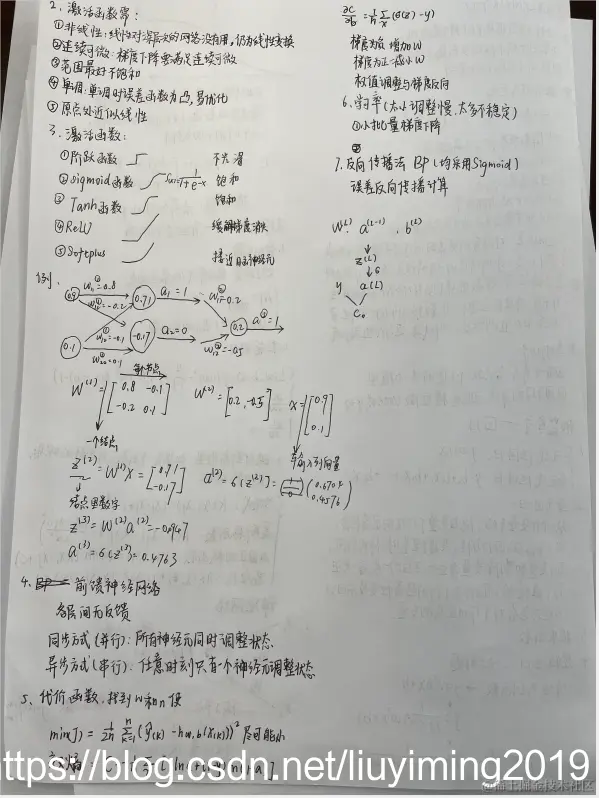 2. 激活函数需:
①非线性: 线性对深层次的网络没有用, 仍为线性变换
②连续可微: 梯度下降要满足连续可微
③范围最好不饱和
④单调: 单调时误差函数为凸, 易优化
⑤原点处近似线性
3. 激活函数:
①阶跃函数 不光滑
②sigmoid函数 f(x)=1/(1+e^-x) 饱和
③Tanh函数 饱和
④ReLU 缓解梯度消失
⑤Softplus 接近
例.
0.9 w₁₁=0.8 0.71 a₁=1 w₁₁=0.2
w₁₂=-0.2 0.2 a=1
0.1 w₂₁=-0.1 -0.17 a₂=0 w₁₂=-0.5
w₂₂=0.1
W⁽¹⁾=[0.8 -0.1 -0.2 0.1] W⁽²⁾=[0.2, -0.5] x=[0.9 0.1]
一个结点 列向量
z⁽²⁾=W⁽¹⁾x=[0.71 -0.17] a⁽²⁾=6(z⁽²⁾)= (0.6704 0.4576)
结点里数字
z⁽³⁾=W⁽²⁾a⁽²⁾=-0.0947
a⁽³⁾=6(z⁽³⁾)=0.4763
4. 前馈神经网络
各层间无反馈
同步方式(并行): 所有神经元同时调整状态
异步方式(串行): 任意时刻只有一个神经元调整状态
5. 代价函数, 找到w和n使
min(J)=
∂C/∂b=1/n Σx(6(z)-y)
梯度为负 增加w
梯度为正 减小w
权值调整与梯度反向
6. 学习率(太小调整慢, 太多不稳定)
①小批量梯度下降
②
7. 反向传播法 BP (均采用Sigmoid)
误差反向传播计算
w⁽ᴸ⁾ a⁽ᴸ⁻¹⁾ b⁽ᴸ⁾
z(L)
6
y a(L)
C₀
https://blog.csdn.net/liuyiming2019
@稀土掘金技术社区